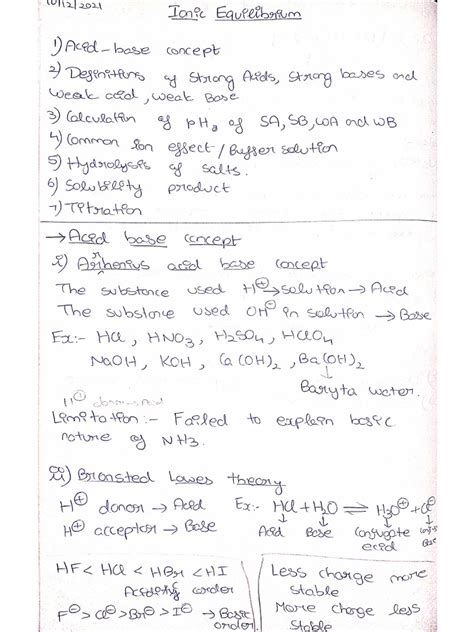 10/12/2021
Ionic Equilibrium
1) Acid-base concept
2) Definitions of strong Acids, strong bases and
weak acid, weak Base
3) Calculation of pH, of SA, SB, WA and WB
4) Common ion effect / Buffer solution
5) Hydrolysis of salts.
6) Solubility product
7) Titration
→ Acid base concept
i) Arrhenius acid base concept
The substance used H⊕ → solution → Acid
The substance used OH⊖ in solution → Base
Ex:- HCl, HNO3, H2SO4, HClO4
NaOH, KOH, Ca(OH)2, Ba(OH)2
↓
Baryta water.
Limitation:- Failed to explain basic
nature of NH3.
ii) Bronsted Lowes theory
H⊕ donor → Acid Ex:- HCl + H2O ⇌ H3O⊕ + Cl⊖
H⊕ acceptor → Base ↓ Acid ↓ Base ↓ Conjugate acid ↓ Base
HF < HCl < HBr < HI
Acidity order
F⊖ > Cl⊖ > Br⊖ > I⊖ → Basic order.
Less charge more
stable
More charge less
stable